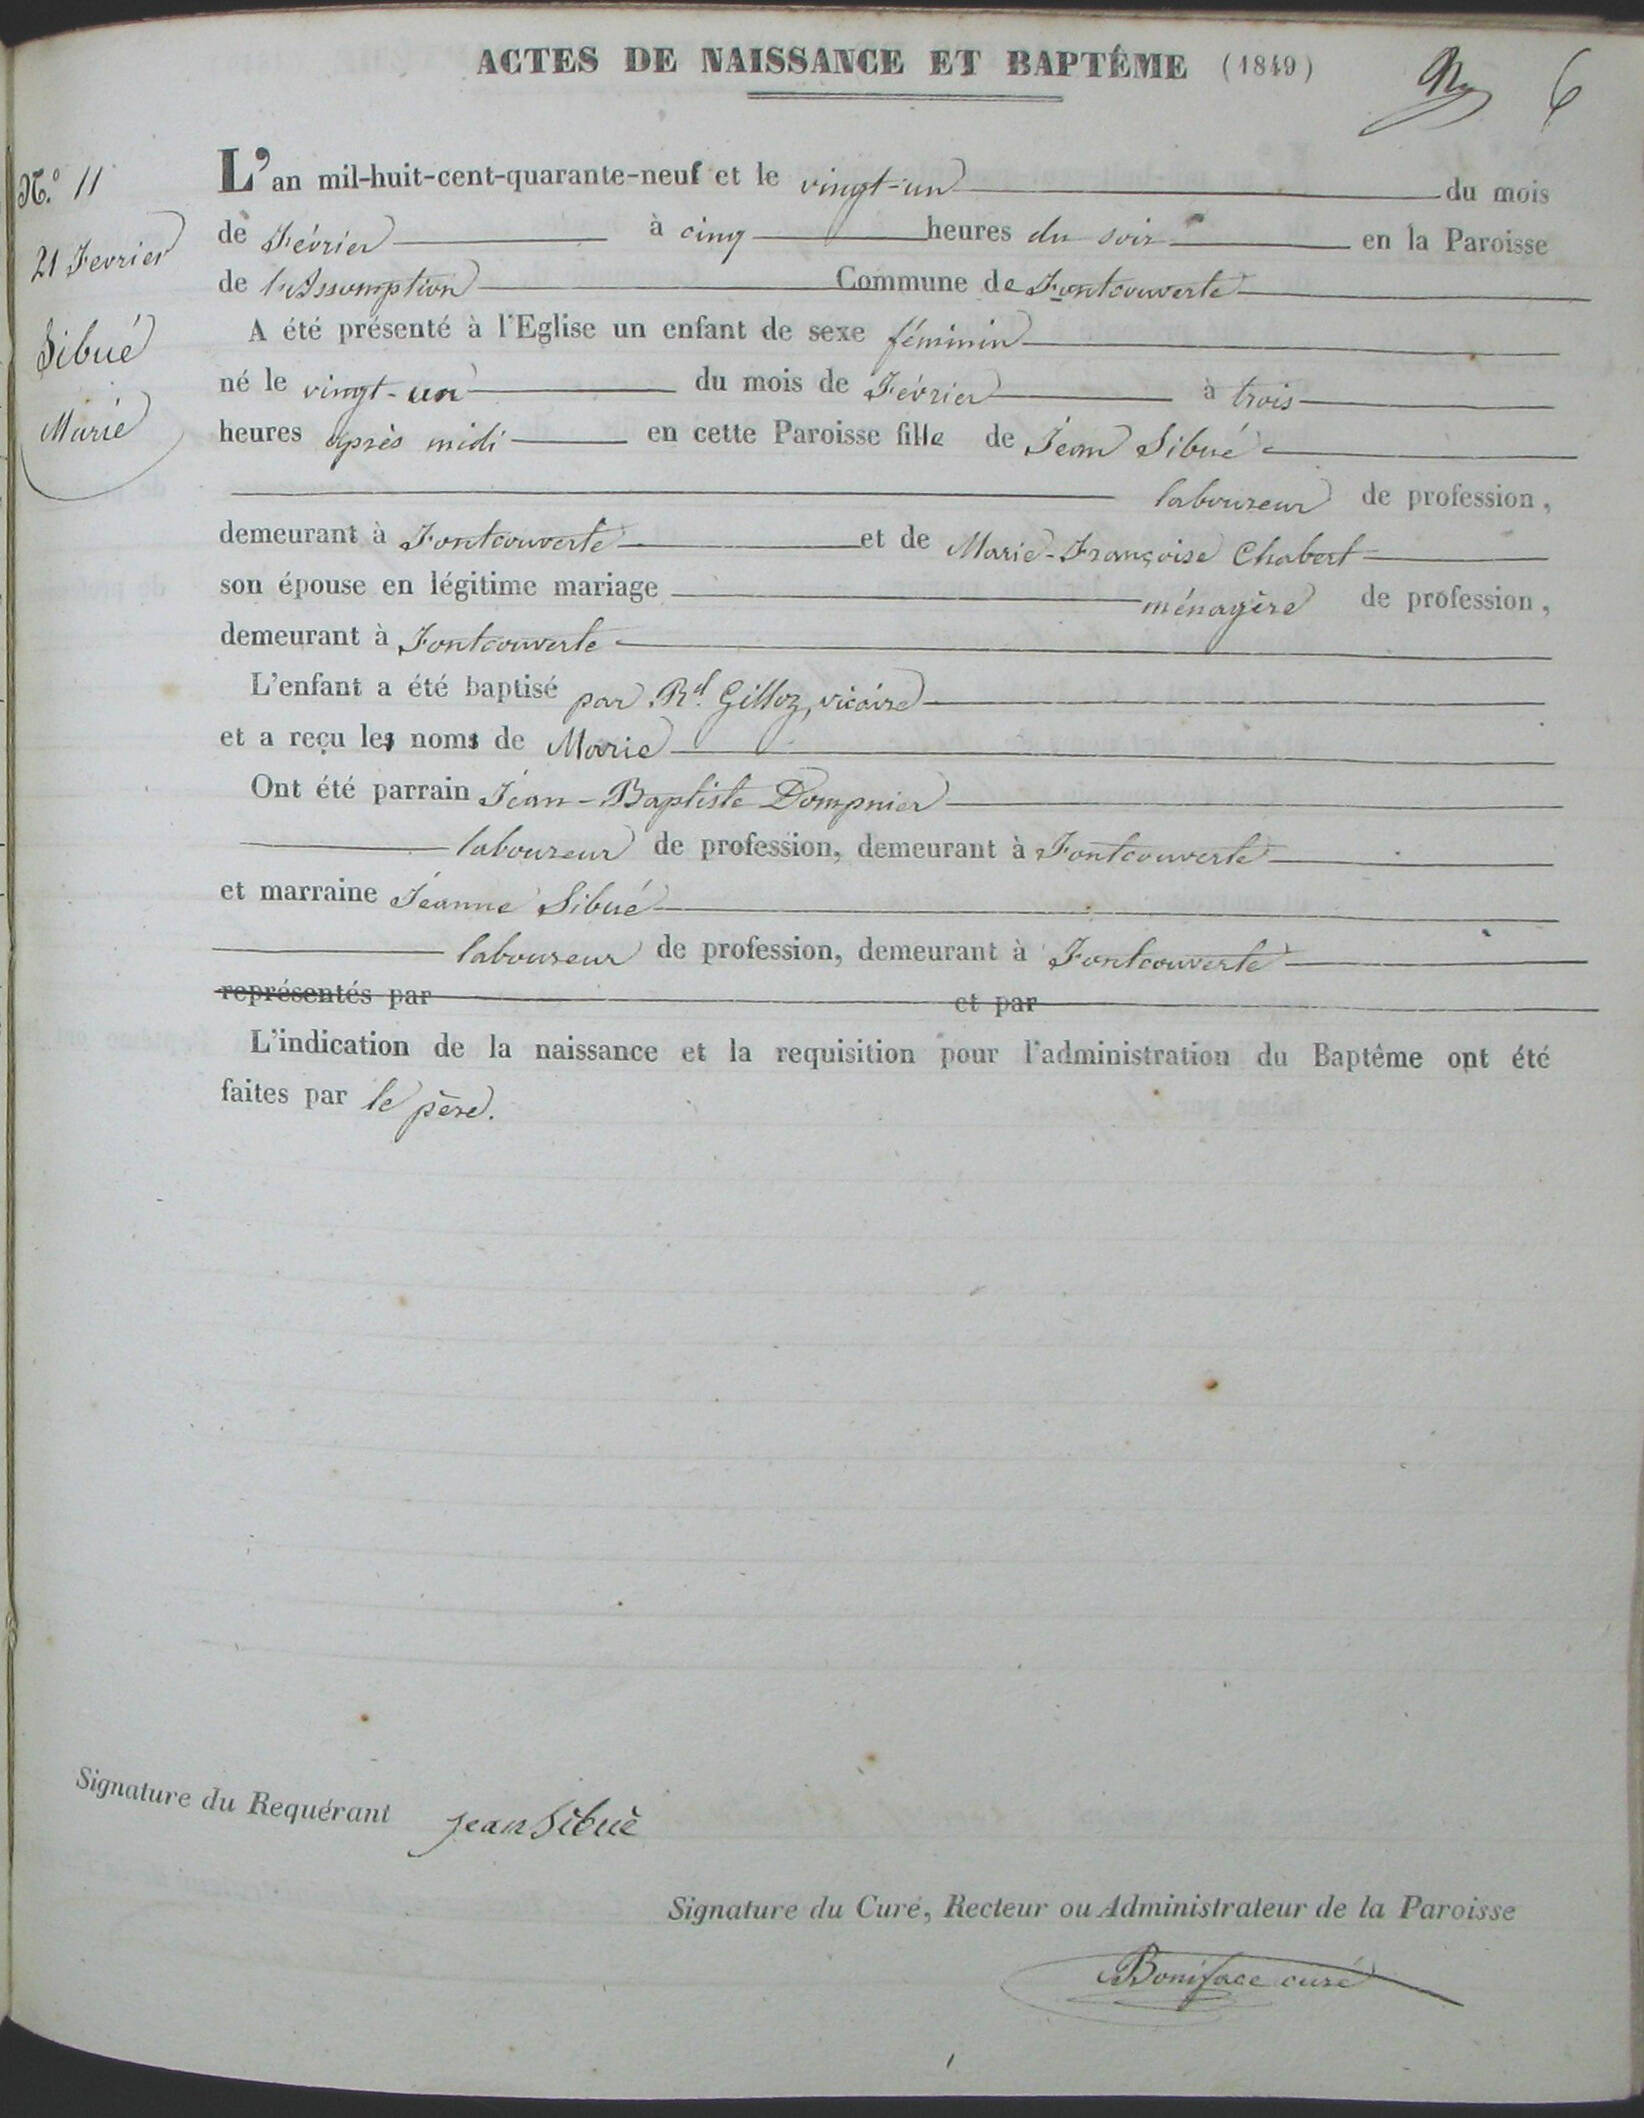 ACTES DE NAISSANCE ET BAPTÊME (1849)
6
N.º 11
21 Fevrier
Sibué
Marie
L'an mil-huit-cent-quarante-neuf et le vingt-un du mois
de Février à cinq heures du soir en la Paroisse
de l'Assomption Commune de Fontcouverte
A été présenté à l'Eglise un enfant de sexe féminin
né le vingt-un du mois de Février à trois
heures après midi en cette Paroisse fille de Jean Sibué
laboureur de profession,
demeurant à Fontcouverte et de Marie-Françoise Chabert
son épouse en légitime mariage ménagère de profession,
demeurant à Fontcouverte
L'enfant a été baptisé par Rd. Gilloz, vicaire
et a reçu les noms de Marie
Ont été parrain Jean-Baptiste Dompnier
laboureur de profession, demeurant à Fontcouverte
et marraine Jeanne Sibué
laboureur de profession, demeurant à Fontcouverte
représentés par et par
L'indication de la naissance et la requisition pour l'administration du Baptême ont été
faites par le père.
Signature du Requérant jean Sibué
Signature du Curé, Recteur ou Administrateur de la Paroisse
Boniface curé